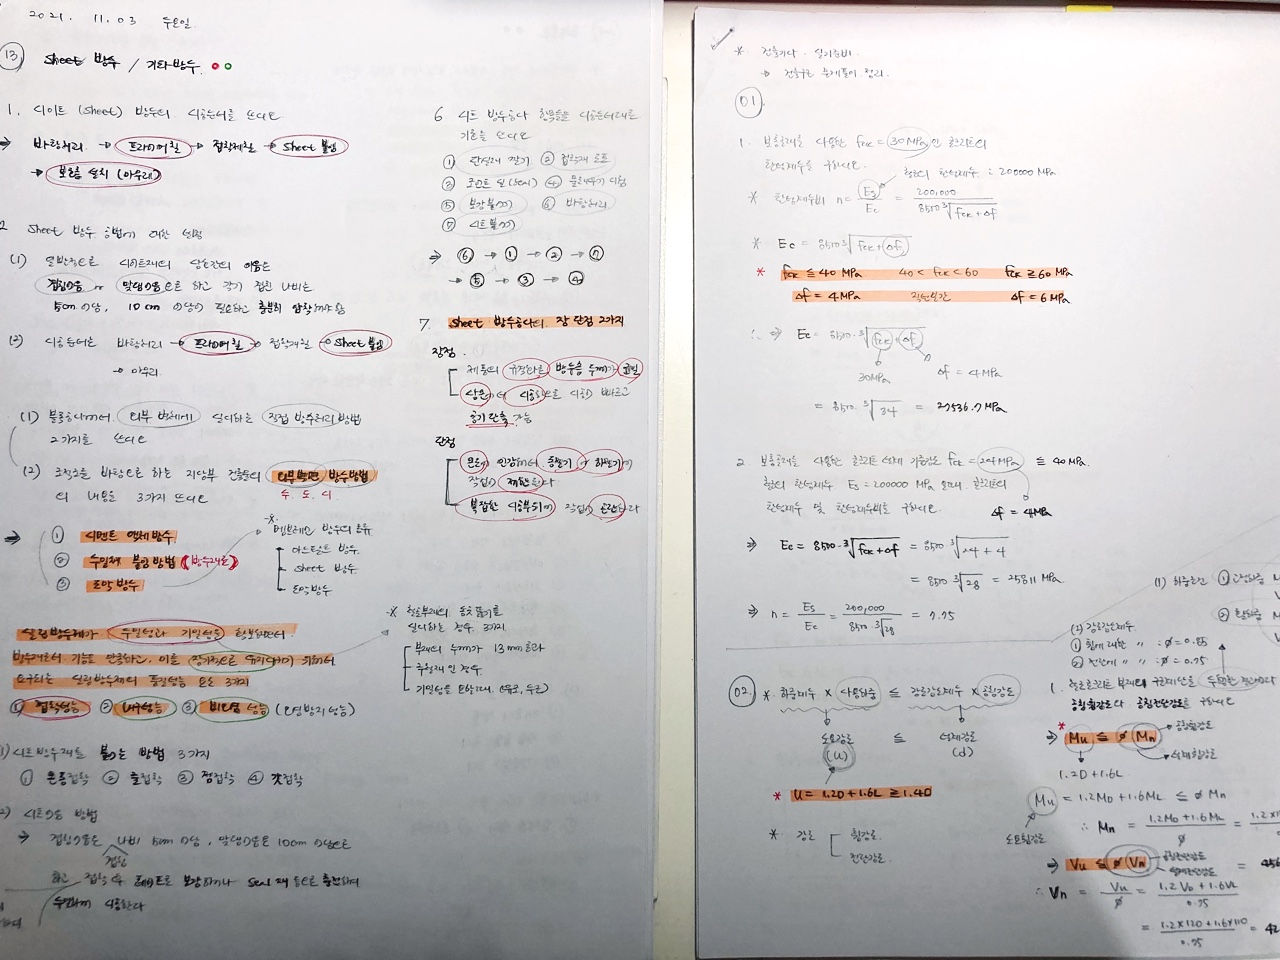 2021. 11. 03 수요일
13 sheet 방수 / 기타방수.
1. 시이트 (sheet) 방수의 시공순서를 쓰시오
⇒ 바탕처리 → 프라이머칠 → 접착제칠 → sheet 붙임
→ 보호층 설치 (마무리)
2 sheet 방수 공법에 대한 설명
(1) 일반적으로 시이트재의 상호간의 이음은
겹침이음 or 맞댐이음으로 하고 각기 겹친 나비는
5cm 이상, 10cm 이상이 필요하고 충분히 압착해야 함
(2) 시공순서는 바탕처리 → 프라이머칠 → 접착제칠 → sheet 붙임
→ 마무리
(1) 외부 벽체에 실시하는 직접 방수처리 방법
2가지를 쓰시오
(2) 바탕으로 하는 지상부 건축물의 외부벽면 방수방법
의 내용을 3가지 쓰시오
수. 도. 시.
⇒ ① 시멘트 액체방수
② 수밀재 붙임방법 (방수재료)
③ 도막방수
* 멤브레인 방수의 종류
아스팔트 방수.
sheet 방수.
도막방수
실링방수제가 수밀성과 기밀성을 확보하면서
방수재로서 기능도 만족하고, 이를 장기적으로 유지하기 위해서
요구되는 실링방수제의 품질성능 요소 3가지
① 접착성능 ② 내구성능 ③ 비오염 성능 (오염방지성능)
1) 시트방수재를 붙이는 방법 3가지
① 온통접착 ② 줄접착 ③ 점접착 ④ 갓접착
2) 시트이음 방법
→ 겹침이음은 나비 5cm 이상, 맞댐이음은 10cm 이상으로
겹침
하고 접착 후 테이프로 보강하거나 seal재 등으로 충전하여
수밀하게 시공한다
6 시트 방수공사 항목들을 시공순서대로
기호를 쓰시오
① 단열재 깔기 ② 접착제 도포
③ 조인트 실(seal) ④ 물채우기 시험
⑤ 보강붙이기 ⑥ 바탕처리
⑦ 시트붙이기
⇒ ⑥ → ① → ② → ⑦
→ ⑤ → ③ → ④
7. sheet 방수공사의 장 단점 2가지
장점.
제품의 규격화로 방수층 두께가 균일
상온에서 시공하므로 시공이 빠르고
공기단축 가능
단점
온도에 민감해서 동절기 or 하절기에
작업이 제한된다
복잡한 시공부위의 작업이 곤란하다
* 철골부재의 용접뚫기를
실시하는 경우 3가지
부재의 두께가 13mm 초과
주철재인 경우
기밀성을 요할때. (유조, 수조)
* 건축기사 실기준비.
→ 건축구조 문제풀이 정리.
01.
1. 보통골재를 사용한 fck = 30MPa인 콘크리트의
탄성계수를 구하시오.
철근의 탄성계수 : 200000 MPa
* 탄성계수비 n = Es/Ec = 200,000 / 8500 ³√fck+Δf
* Ec = 8500 ³√fck+Δf
* fck ≦ 40 MPa 40 < fck < 60 fck ≧ 60 MPa
Δf = 4 MPa 직선보간 Δf = 6 MPa
∴ ⇒ Ec = 8500 · ³√fck+Δf
30MPa Δf = 4 MPa
= 8500 · ³√34 = 27536.7 MPa
2. 보통골재를 사용한 콘크리트 설계 기준강도 fck = 24MPa ≦ 40MPa.
철근의 탄성계수 Es = 200000 MPa 일때. 콘크리트
탄성계수 및 탄성계수비를 구하시오. Δf = 4MPa
⇒ Ec = 8500 · ³√fck+Δf = 8500 ³√24+4
= 8500 · ³√28 = 25811 MPa
⇒ n = Es/Ec = 200,000 / 8500 · ³√28 = 7.75
02. * 하중계수 × 사용하중 ≦ 강도감소계수 × 공칭강도
소요강도 ≦ 설계강도
(U) (d)
* U = 1.2D + 1.6L ≧ 1.4D
* 강도 휨강도.
전단강도.
(1) 하중조건 ① 고정하중
② 활하중
(2) 강도감소계수.
① 휨에 대한 〃 : Ø = 0.85
② 전단에 〃 〃 : Ø = 0.75
1. 철근콘크리트 부재의
공칭휨강도와 공칭전단강도를 구하시오
* ⇒ Mu ≦ Ø Mn 공칭휨강도
설계휨강도
1.2D + 1.6L
Mu = 1.2MD + 1.6ML ≦ Ø Mn
소요휨강도
∴ Mn = 1.2MD + 1.6ML / Ø
⇒ Vu ≦ Ø Vn 공칭전단강도
설계전단강도
∴ Vn = Vu/Ø = 1.2VD + 1.6VL / 0.75
= 1.2×120 + 1.6×110 / 0.75 = 42